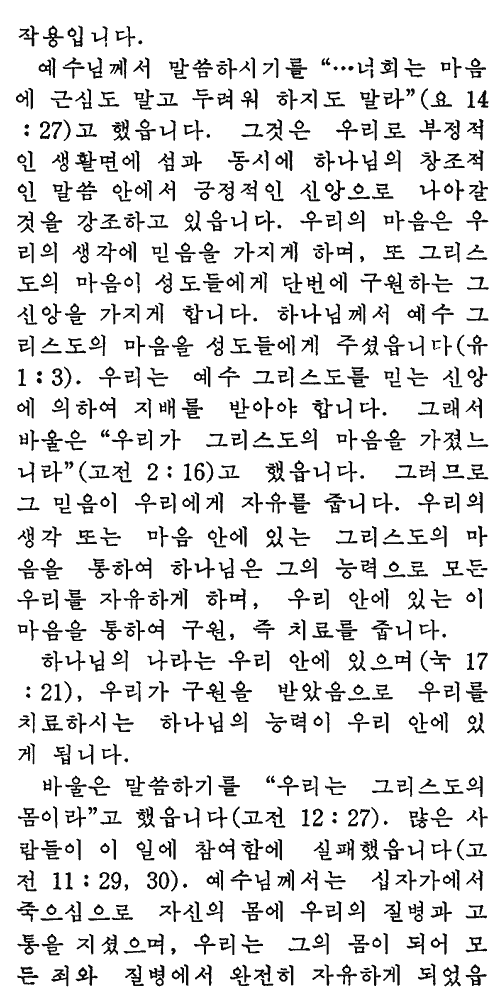 작용입니다.
예수님께서 말씀하시기를 “…너희는 마음
에 근심도 말고 두려워 하지도 말라”(요 14
:27)고 했읍니다. 그것은 우리로 부정적
인 생활면에 섬과 동시에 하나님의 창조적
인 말씀 안에서 긍정적인 신앙으로 나아갈
것을 강조하고 있읍니다. 우리의 마음은 우
리의 생각에 믿음을 가지게 하며, 또 그리스
도의 마음이 성도들에게 단번에 구원하는 그
신앙을 가지게 합니다. 하나님께서 예수 그
리스도의 마음을 성도들에게 주셨읍니다(유
1:3). 우리는 예수 그리스도를 믿는 신앙
에 의하여 지배를 받아야 합니다. 그래서
바울은 “우리가 그리스도의 마음을 가졌느
니라”(고전 2:16)고 했읍니다. 그러므로
그 믿음이 우리에게 자유를 줍니다. 우리의
생각 또는 마음 안에 있는 그리스도의 마
음을 통하여 하나님은 그의 능력으로 모든
우리를 자유하게 하며, 우리 안에 있는 이
마음을 통하여 구원, 즉 치료를 줍니다.
하나님의 나라는 우리 안에 있으며(눅 17
:21), 우리가 구원을 받았음으로 우리를
치료하시는 하나님의 능력이 우리 안에 있
게 됩니다.
바울은 말씀하기를 “우리는 그리스도의
몸이라”고 했읍니다(고전 12:27). 많은 사
람들이 이 일에 참여함에 실패했읍니다(고
전 11:29, 30). 예수님께서는 십자가에서
죽으심으로 자신의 몸에 우리의 질병과 고
통을 지셨으며, 우리는 그의 몸이 되어 모
든 죄와 질병에서 완전히 자유하게 되었읍